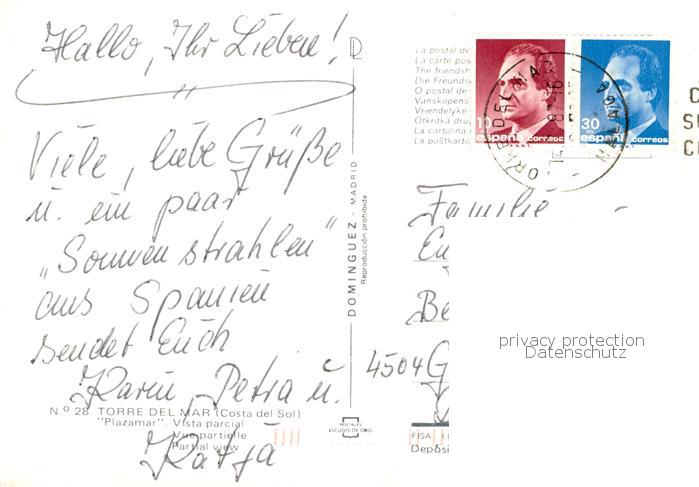 Hallo, Ihr Lieben!
Viele, liebe Grüße
u. ein paar
„Sonnenstrahlen"
aus Spanien
sendet Euch
Karin, Petra u.
Katja
Nº 28 TORRE DEL MAR (Costa del Sol)
"Plazamar". Vista parcial
Vue partielle
Partial view
DOMINGUEZ - MADRID
Reproducción prohibida
POSTALES
ESCUDO DE ORO
La postal de
La carte pos
The friendsh
Die Freunds
O postal de
Vanskopens
Vriendelyke
Otkritka dru
La cartolina
La postkarto
10
españa correos
30
españa correos
Familie
Eu
Be
4504 G
FISA
Depós
privacy protection
Datenschutz